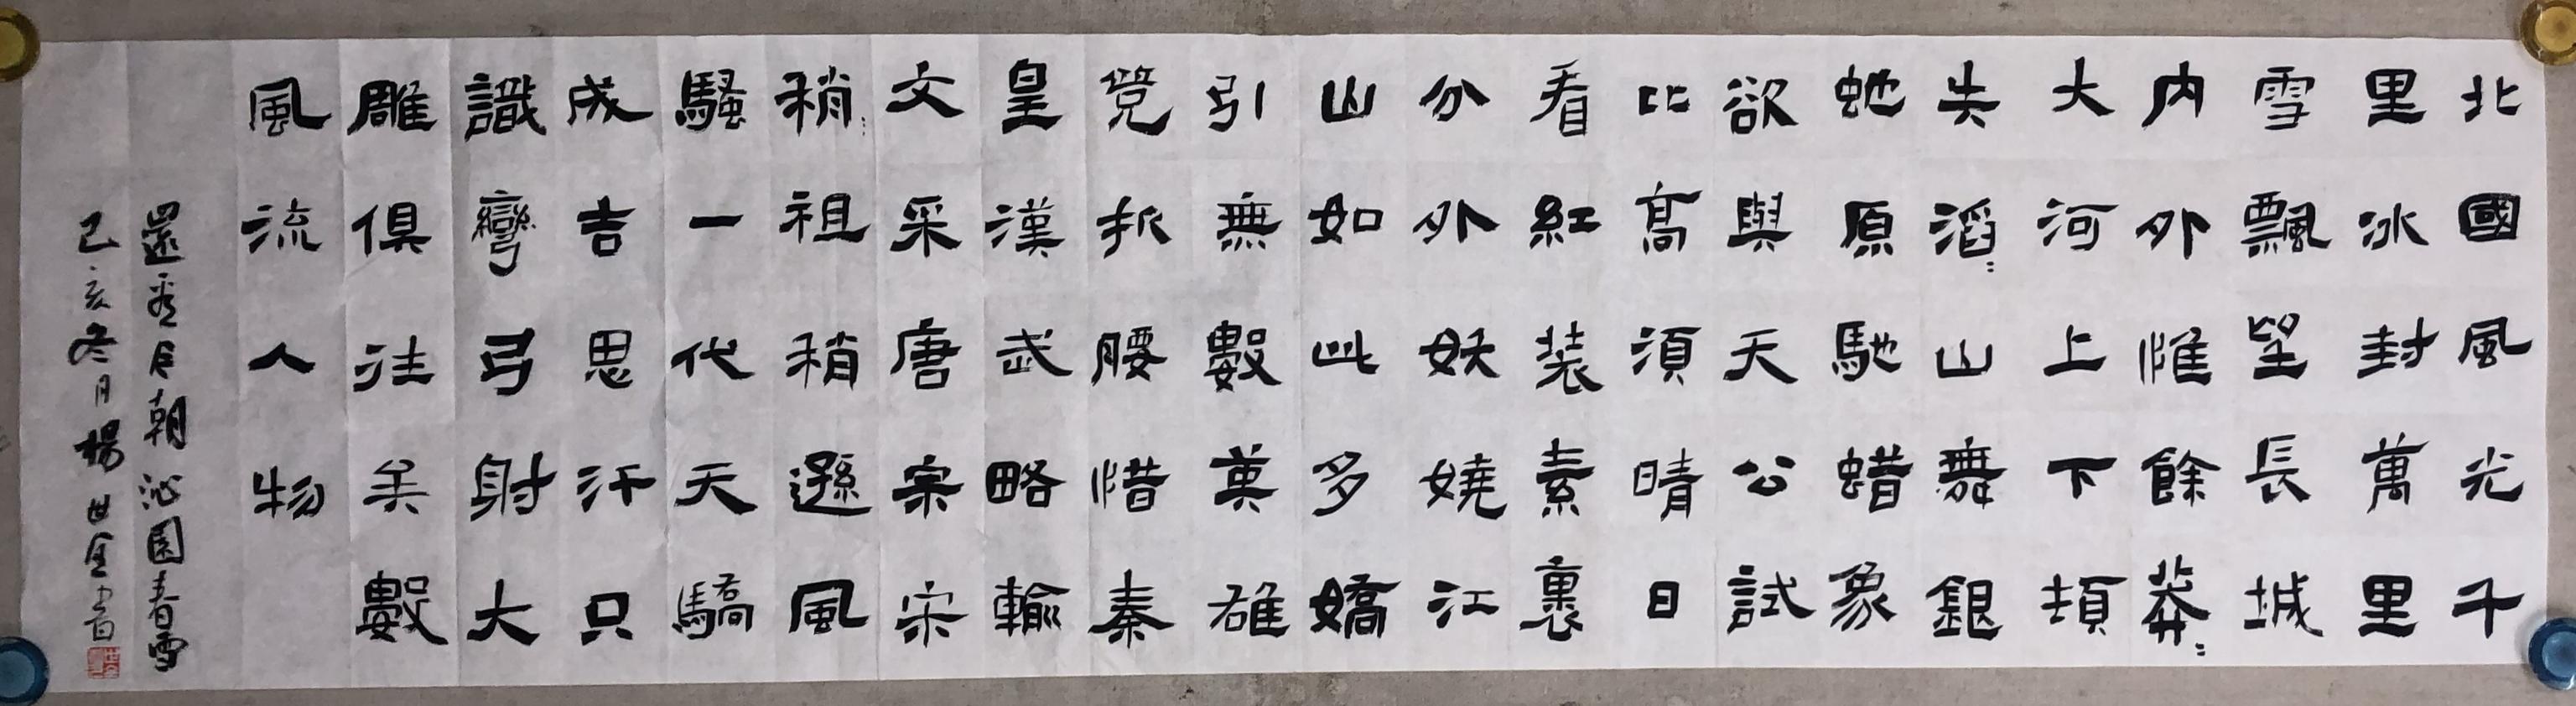 北國風光千
里冰封萬里
雪飄望長城
内外惟餘莽〻
大河上下頓
失滔〻山舞銀
蛇原馳蜡象
欲與天公試
比高須晴日
看紅裝素裹
分外妖嬈江
山如此多嬌
引無數英雄
競折腰惜秦
皇漢武略輸
文采唐宗宋
稍〻祖稍遜風
騷一代天驕
成吉思汗只
識彎弓射大
雕俱往矣數
風流人物
還看今朝 沁園春雪
己亥冬月楊世全書